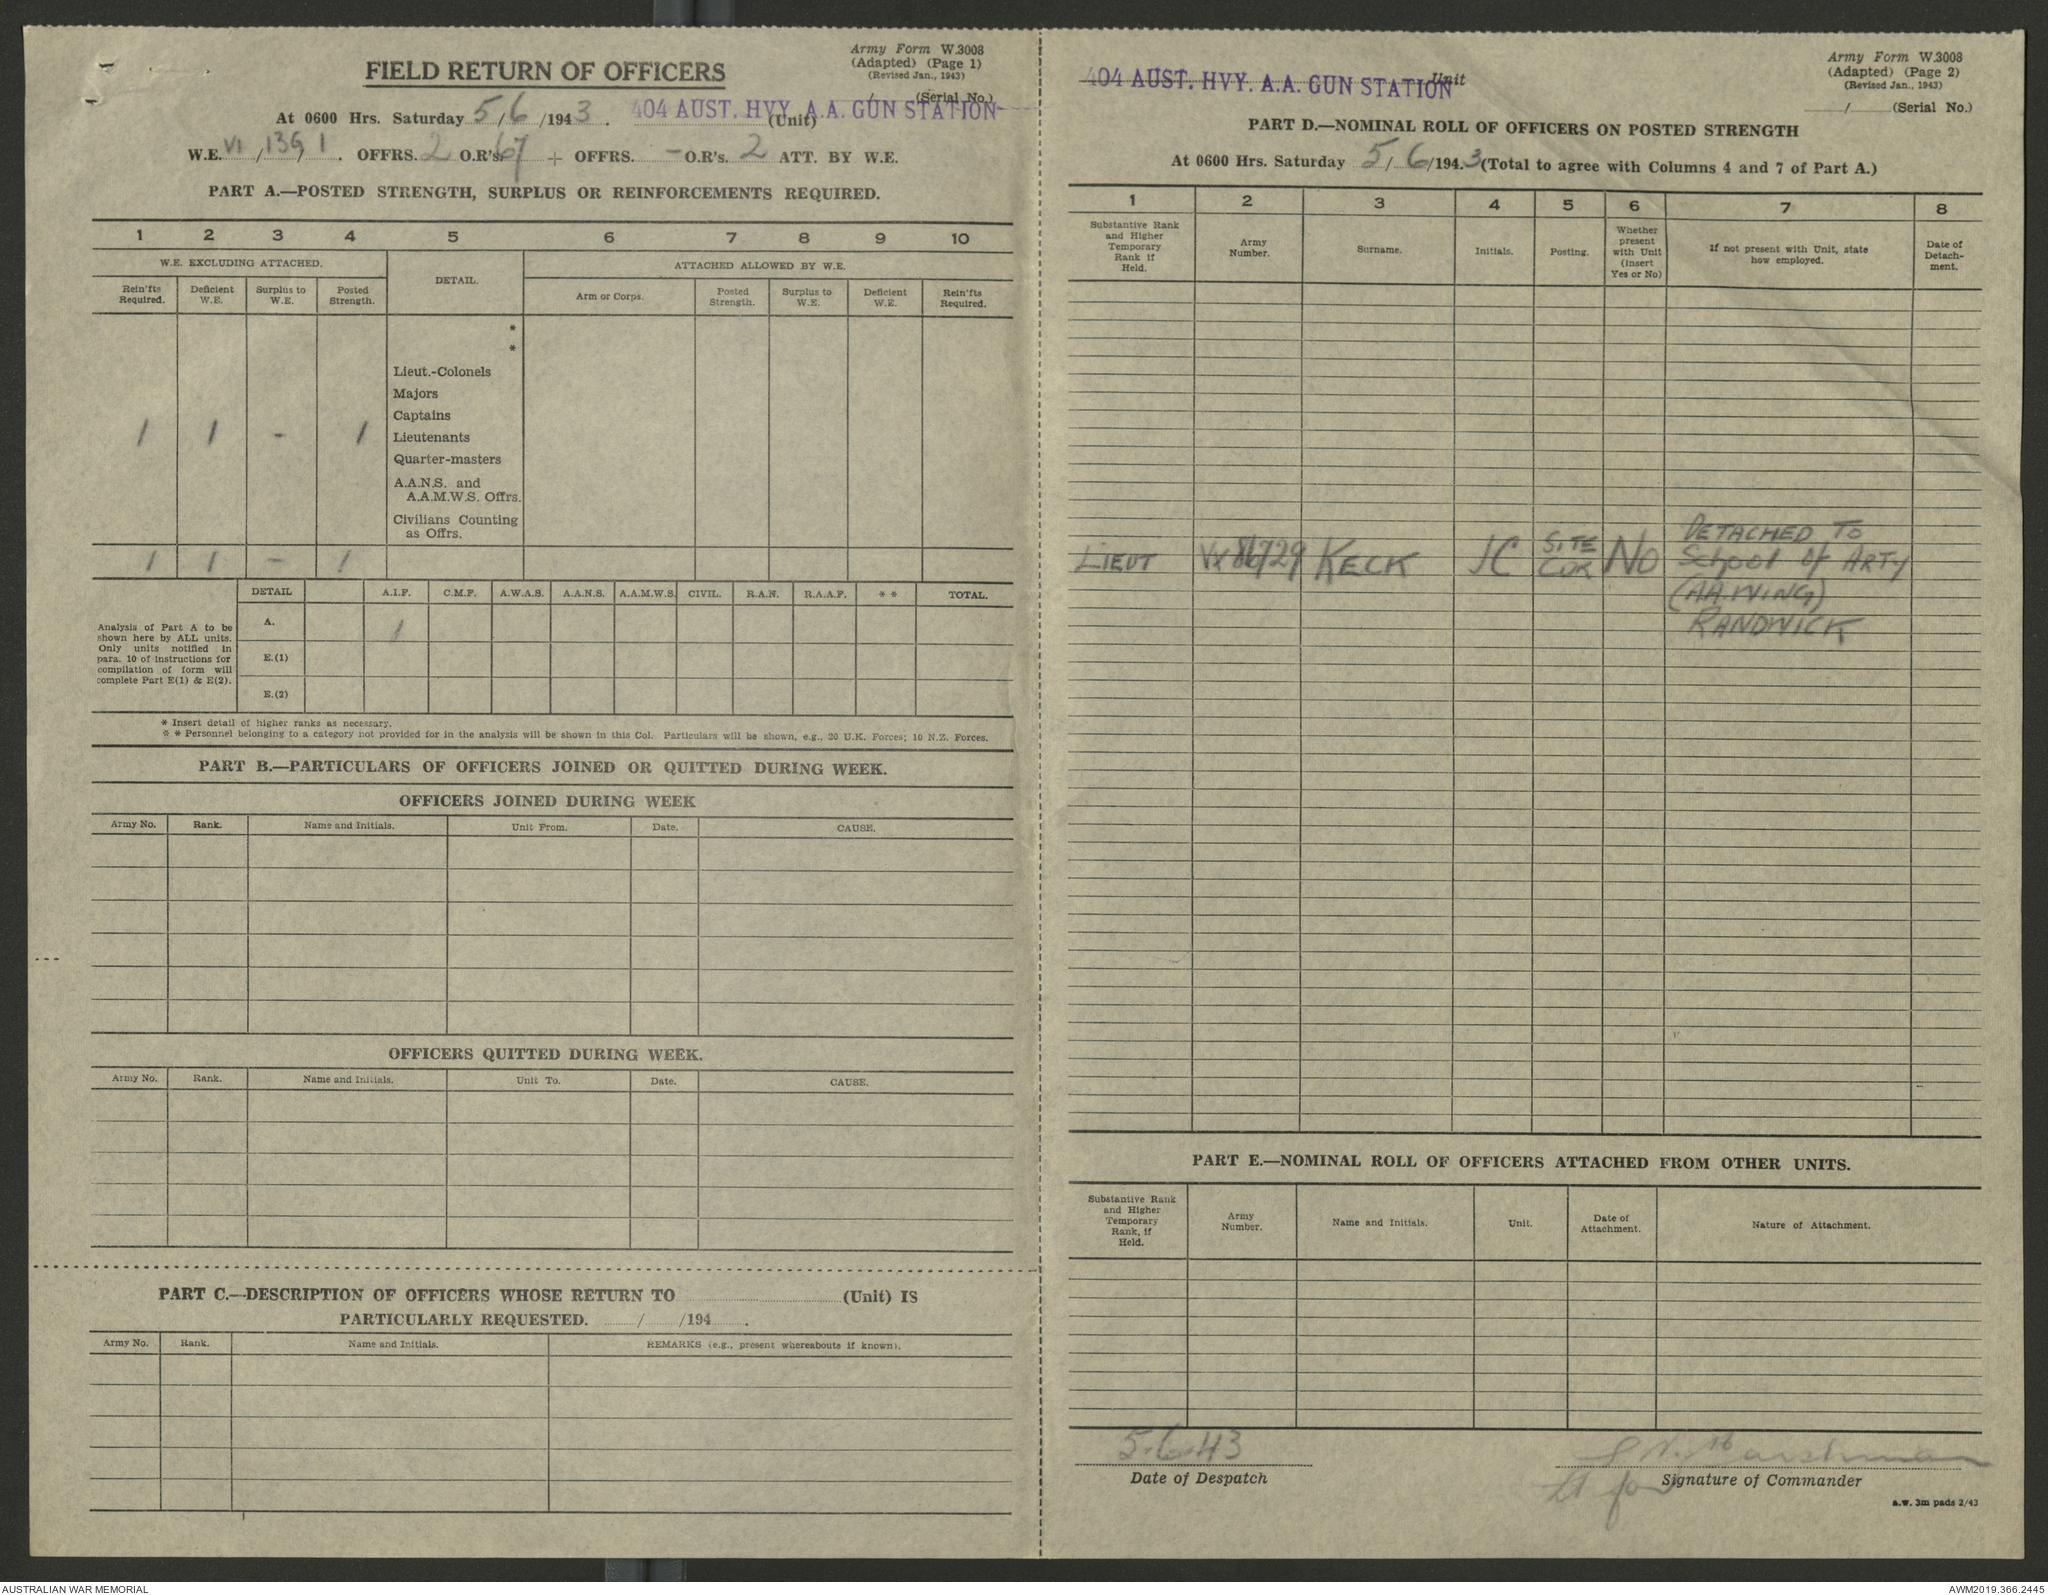 Army Form W.3008
(Adapted) (Page 1)
(Revised Jan., 1943)
FIELD RETURN OF OFFICERS
/ (Serial No.)
At 0600 Hrs. Saturday 5/6/1943. 404 AUST. HVY. A.A. GUN STATION (Unit)
W.E. VI/13G/1. OFFRS. 2 O.R's. 67 + OFFRS. - O.R's. 2 ATT. BY W.E.
PART A.—POSTED STRENGTH, SURPLUS OR REINFORCEMENTS REQUIRED.
1 2 3 4 5 6 7 8 9 10
W.E. EXCLUDING ATTACHED. DETAIL. ATTACHED ALLOWED BY W.E.
Rein'fts Required. Deficient W.E. Surplus to W.E. Posted Strength. Arm or Corps. Posted Strength. Surplus to W.E. Deficient W.E. Rein'fts Required.
*
*
Lieut.-Colonels
Majors
Captains
1 1 - 1 Lieutenants
Quarter-masters
A.A.N.S. and
A.A.M.W.S. Offrs.
Civilians Counting
as Offrs.
1 1 - 1
DETAIL A.I.F. C.M.F. A.W.A.S. A.A.N.S. A.A.M.W.S. CIVIL. R.A.N. R.A.A.F. * * TOTAL.
Analysis of Part A to be
shown here by ALL units.
Only units notified in
para. 10 of instructions for
compilation of form will
complete Part E(1) & E(2).
A. 1
E.(1)
E.(2)
* Insert detail of higher ranks as necessary.
* * Personnel belonging to a category not provided for in the analysis will be shown in this Col. Particulars will be shown, e.g., 20 U.K. Forces; 10 N.Z. Forces.
PART B.—PARTICULARS OF OFFICERS JOINED OR QUITTED DURING WEEK.
OFFICERS JOINED DURING WEEK
Army No. Rank. Name and Initials. Unit From. Date. CAUSE.
OFFICERS QUITTED DURING WEEK.
Army No. Rank. Name and Initials. Unit To. Date. CAUSE.
PART C.—DESCRIPTION OF OFFICERS WHOSE RETURN TO (Unit) IS
PARTICULARLY REQUESTED. / /194 .
Army No. Rank. Name and Initials. REMARKS (e.g., present whereabouts if known).
Army Form W.3008
(Adapted) (Page 2)
(Revised Jan., 1943)
/ (Serial No.)
404 AUST. HVY. A.A. GUN STATION Unit
PART D.—NOMINAL ROLL OF OFFICERS ON POSTED STRENGTH
At 0600 Hrs. Saturday 5/6/1943 (Total to agree with Columns 4 and 7 of Part A.)
1 2 3 4 5 6 7 8
Substantive Rank and Higher Temporary Rank if Held. Army Number. Surname. Initials. Posting. Whether present with Unit (Insert Yes or No) If not present with Unit, state how employed. Date of Detach-ment.
LIEUT VX86729 KECK JC SITE CDR NO DETACHED TO
School Of ARTY
(AA.WING)
RANDWICK
PART E.—NOMINAL ROLL OF OFFICERS ATTACHED FROM OTHER UNITS.
Substantive Rank and Higher Temporary Rank, if Held. Army Number. Name and Initials. Unit. Date of Attachment. Nature of Attachment.
5-6-43
Date of Despatch
Lt for
Signature of Commander
a.w. 3m pads 2/43
AUSTRALIAN WAR MEMORIAL
AWM2019.366.2445